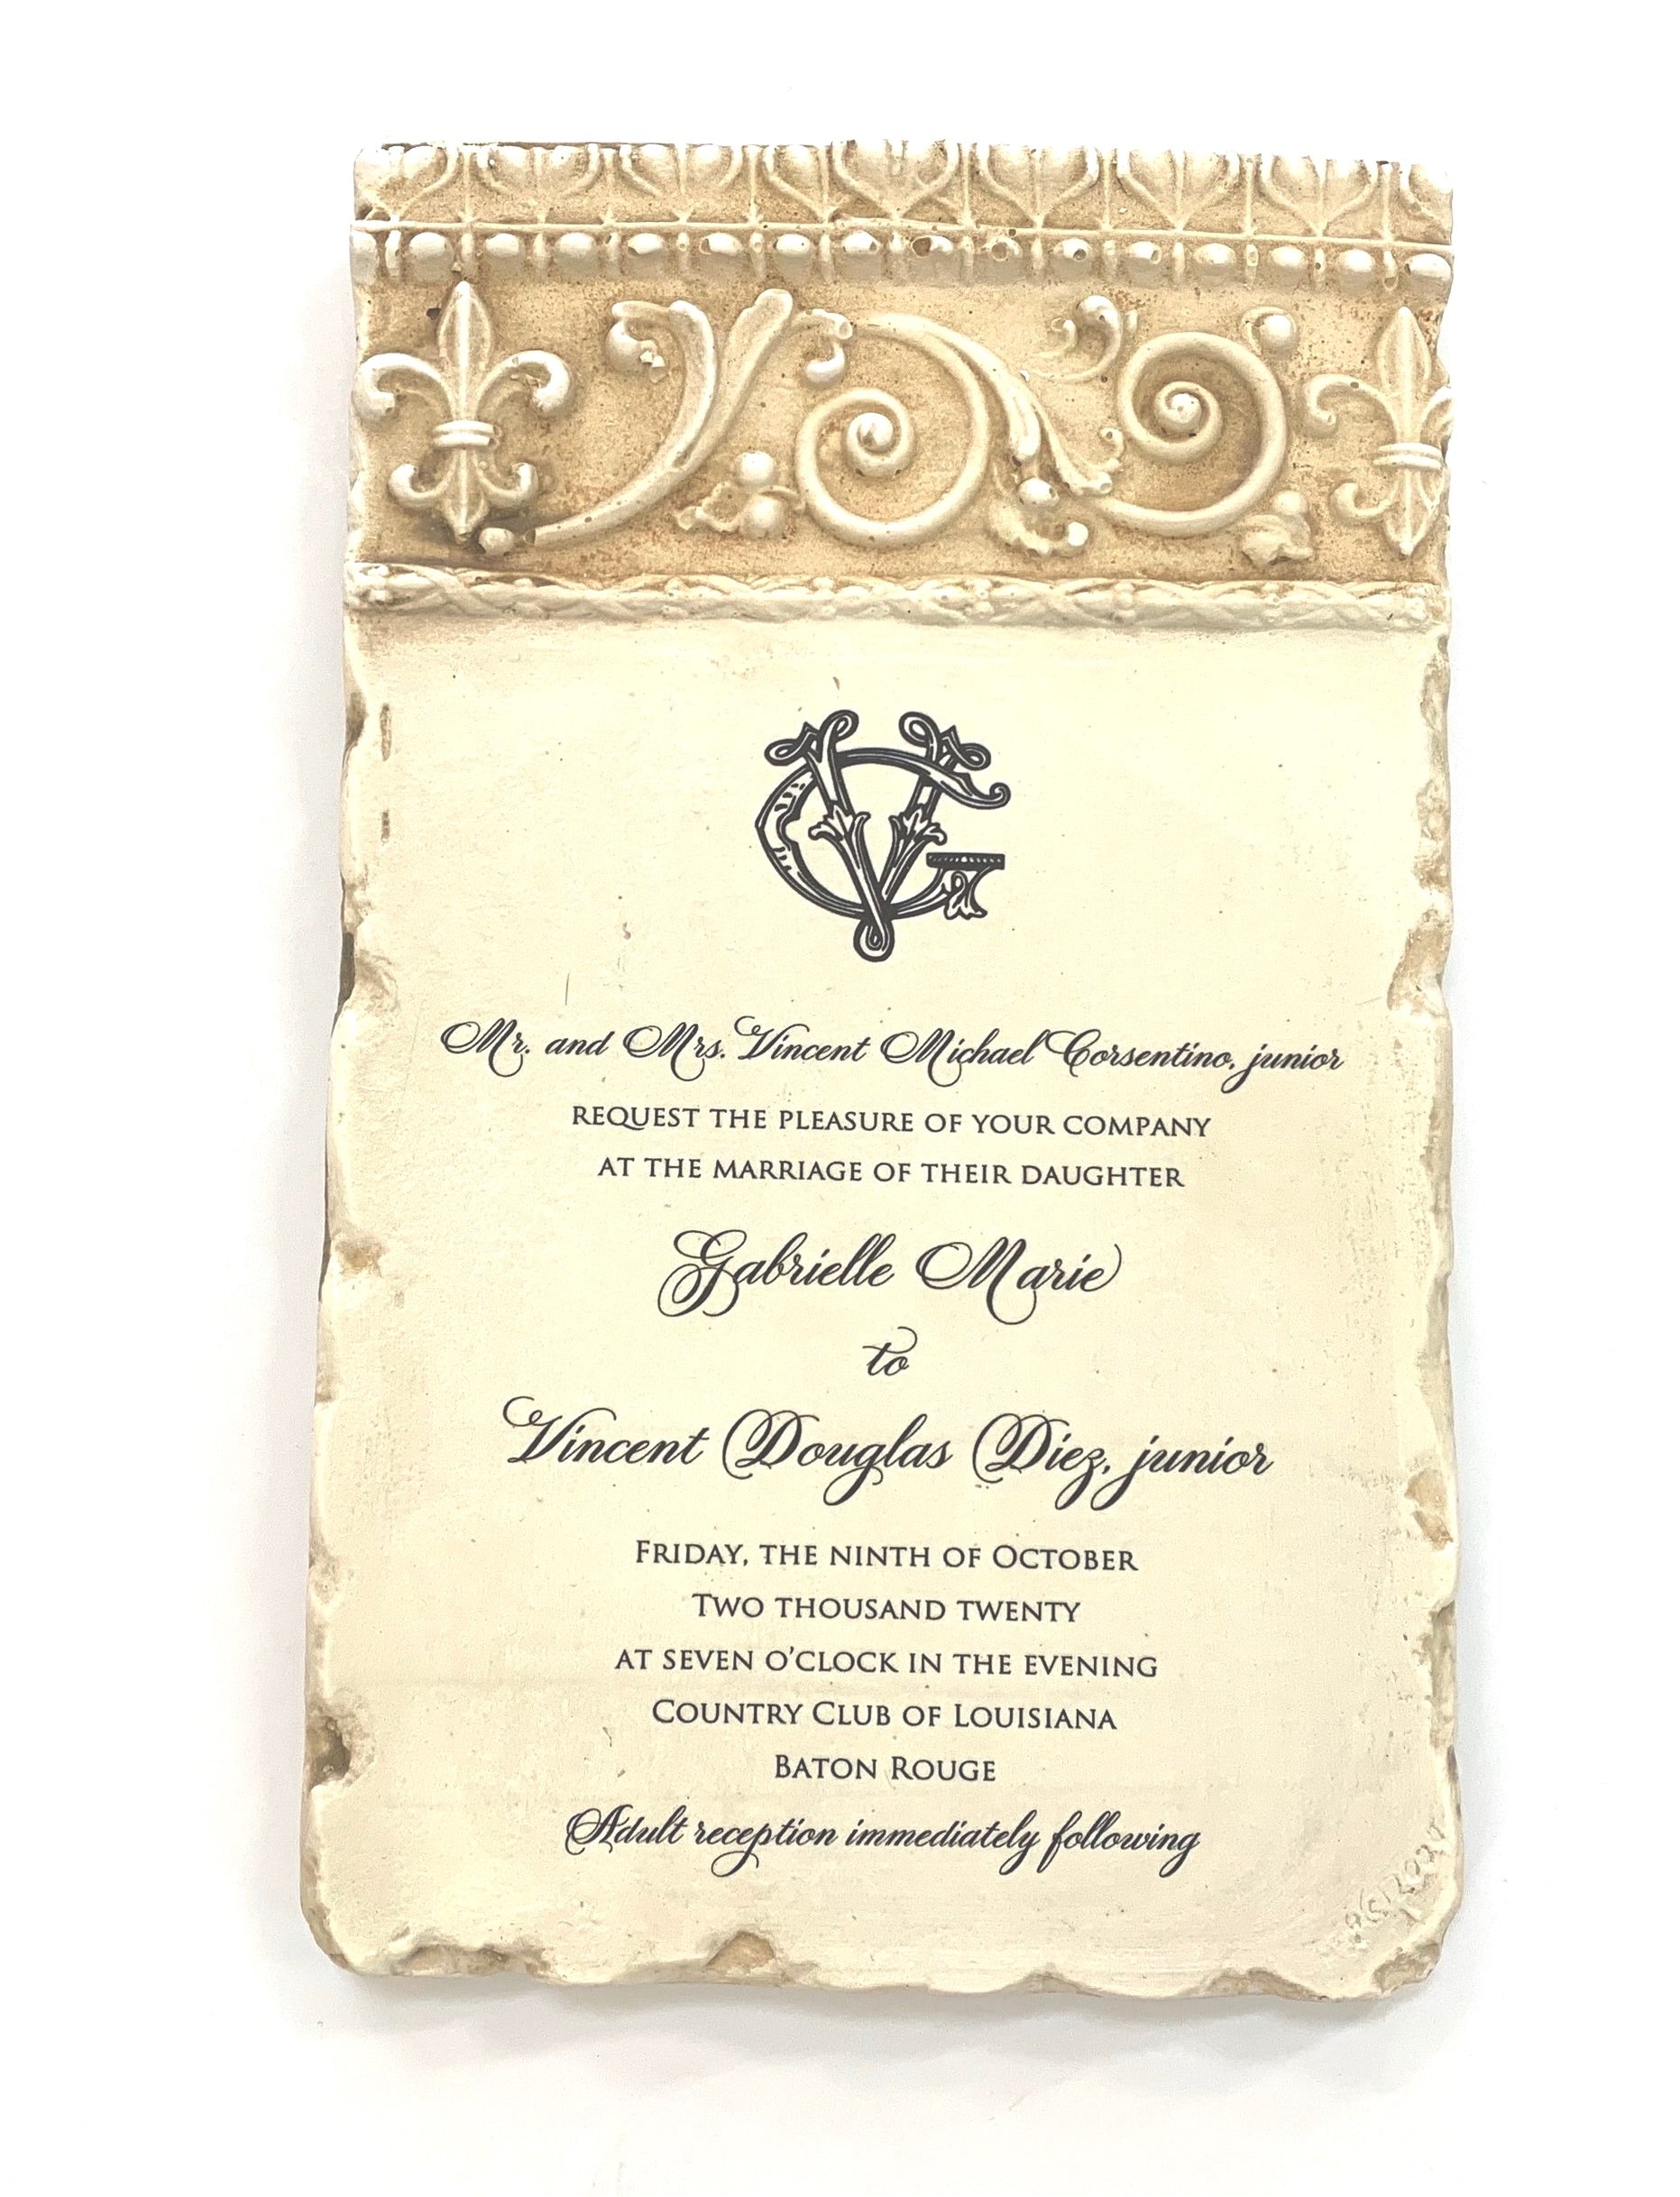 VG
Mr. and Mrs. Vincent Michael Corsentino, junior
REQUEST THE PLEASURE OF YOUR COMPANY
AT THE MARRIAGE OF THEIR DAUGHTER
Gabrielle Marie
to
Vincent Douglas Diez, junior
FRIDAY, THE NINTH OF OCTOBER
TWO THOUSAND TWENTY
AT SEVEN O'CLOCK IN THE EVENING
COUNTRY CLUB OF LOUISIANA
BATON ROUGE
Adult reception immediately following